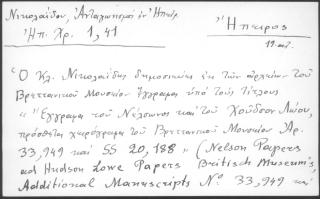 Νικολαΐδου, Ανταγωνισμοί εν Ηπείρ.
Ηπ. Χρ. 1,41
Ήπειρος
19 αι.
Ὁ Κλ. Νικολαΐδης δημοσιεύει ἐκ τῶν ἀρχείων τοῦ
Βρεττανικοῦ Μουσείου ἔγγραφα ὑπό τούς τίτλους
"Ἔγγραφα τοῦ Νέλσωνος καί τοῦ Χοῦδσον Λόου,
πρόσθετα χειρόγραφα τοῦ Βρεττανικοῦ Μουσείου Ἀρ.
33,949 καί SS 20,188" (Nelson Papers
ad Hudson Lowe Papers Britisch Museum's,
Additional Manuscripts Nº 33,949 καί